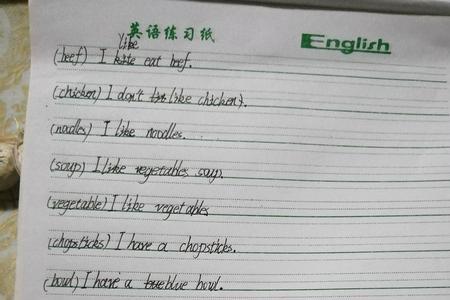 英语练习纸
English
like
(beef) I eat beef.
(chicken) I don't like chicken.
(noodles) I like noodles.
(soup) I like vegetables soup.
(vegetable) I like vegetables
(chopsticks) I have a chopsticks.
(bowl) I have a blue bowl.